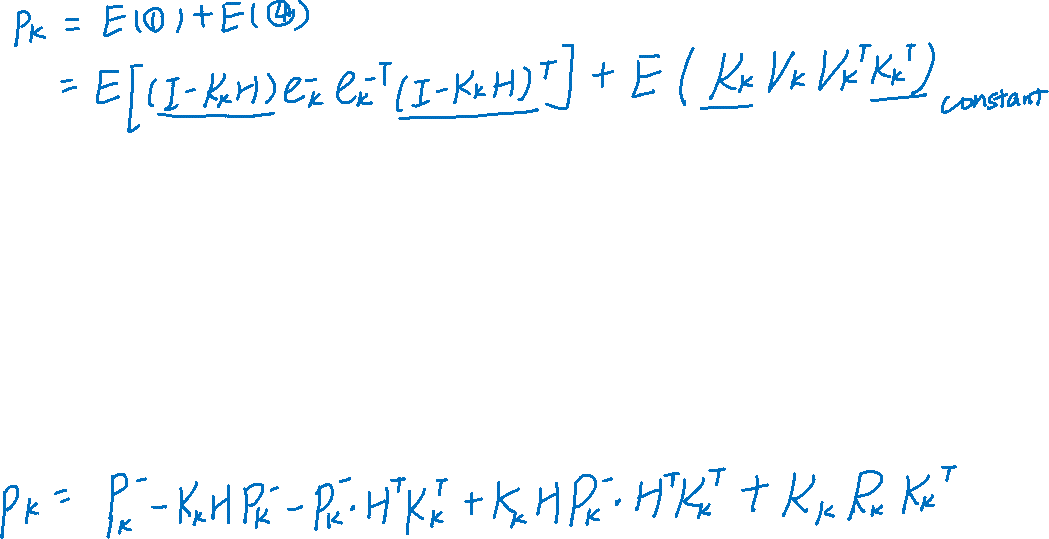 P_k = E(①) + E(④)
= E[(I-K_kH)e_k^- e_k^{-T}(I-K_kH)^T] + E(K_k V_k V_k^T K_k^T) constant
P_k = P_k^- - K_kHP_k^- - P_k^-·H^TK_k^T + K_kHP_k^-·H^TK_k^T + K_k R_k K_k^T